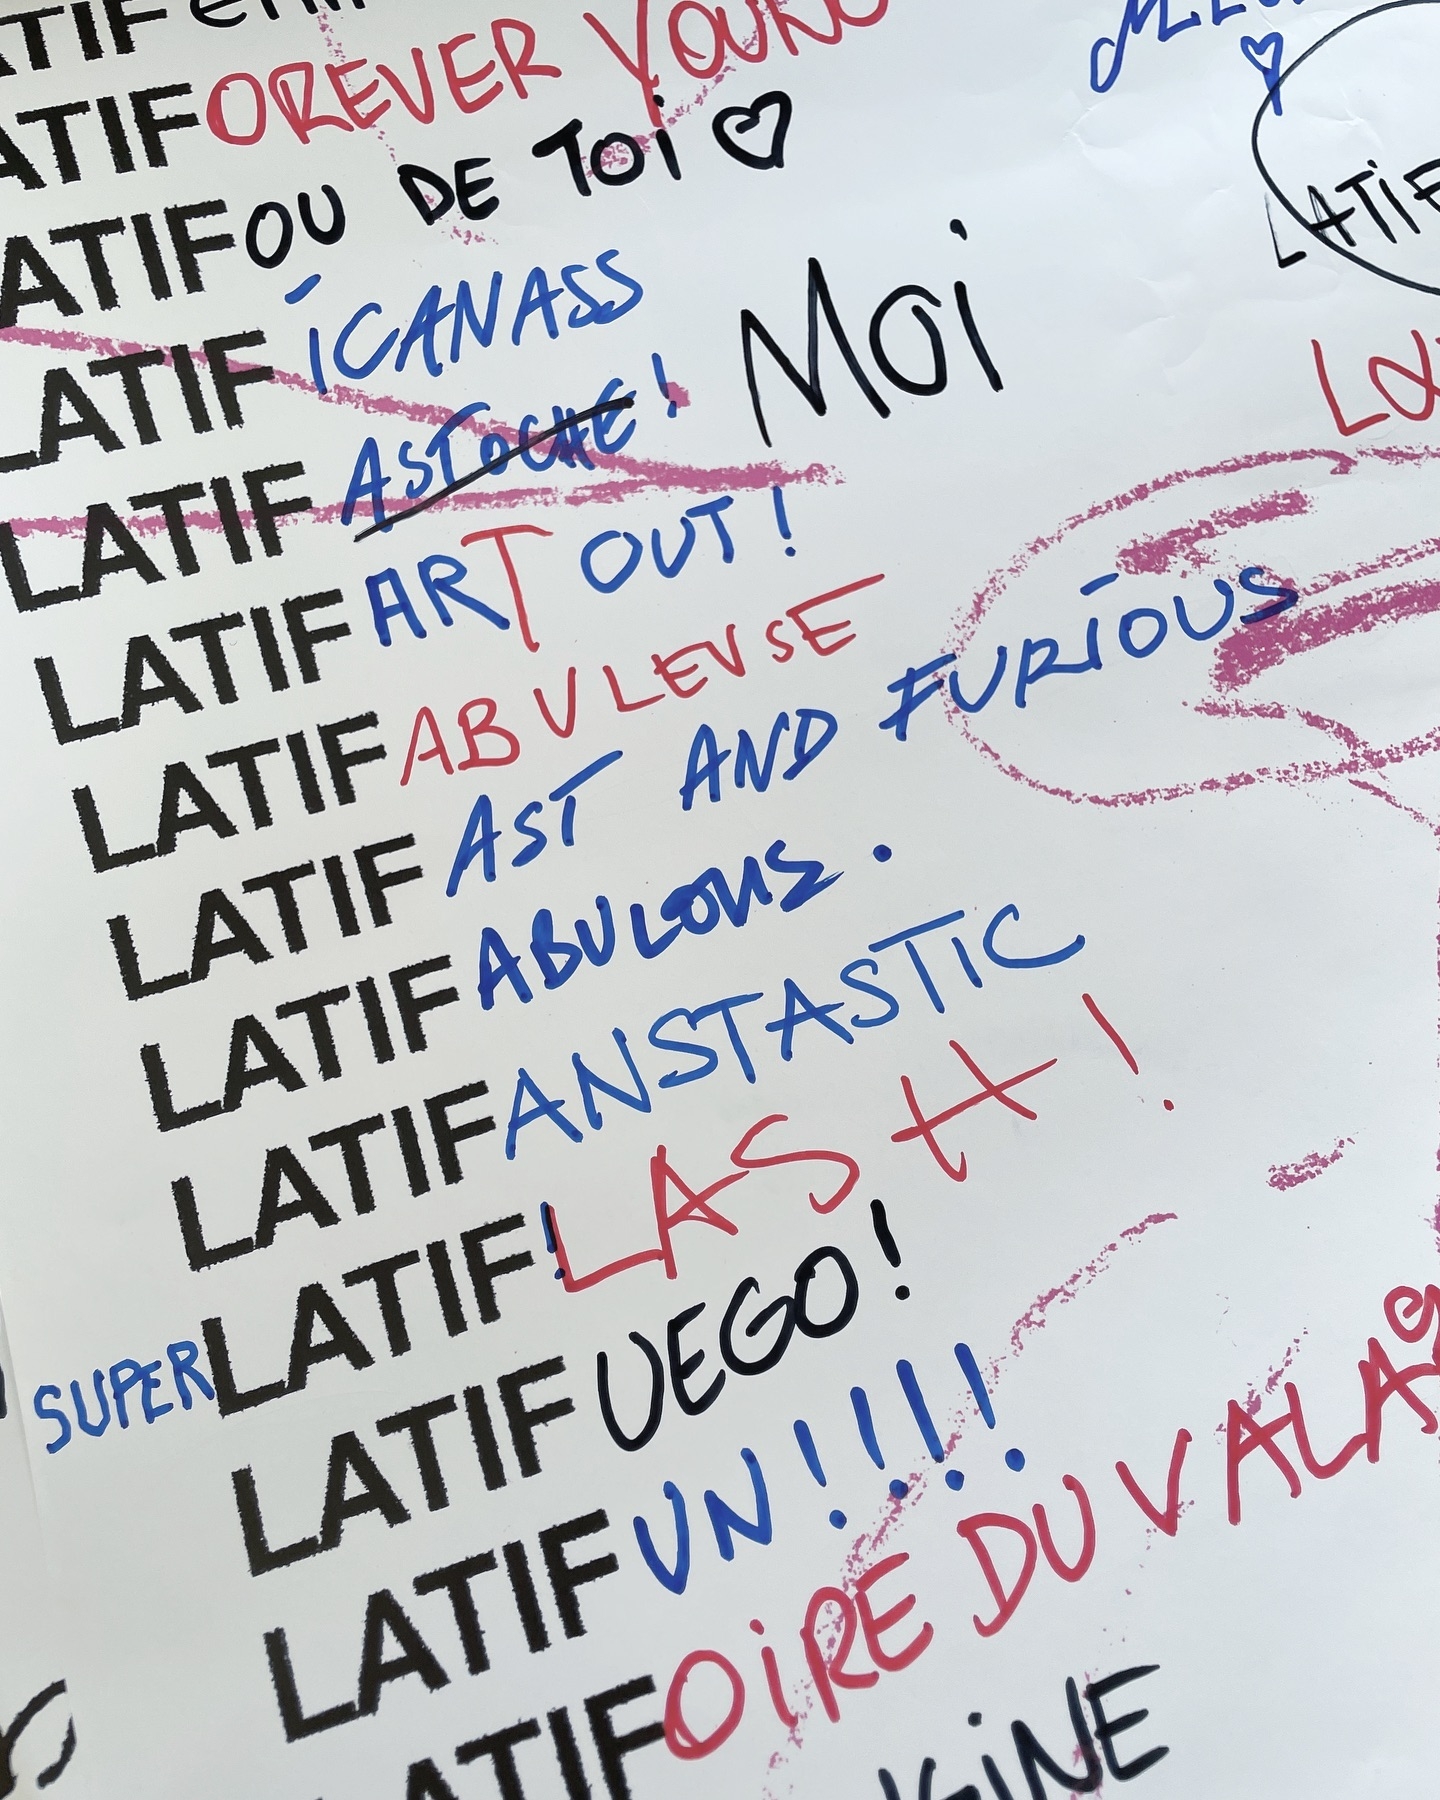 LATIFOREVER YOUNG
LATIFOU DE TOi
LATIF iCANASS
LATIF ASTOCHE!
MOi
LATIFART OUT!
LATIFABULEUSE
LATIF AST AND FURiOUS
LATIFABULOUS.
LATIFANSTASTIC
SUPERLATIF!LASH!
LATIF UEGO!
LATIFUN!!!!
LATIFOiRE DU VALAiS
LATIF